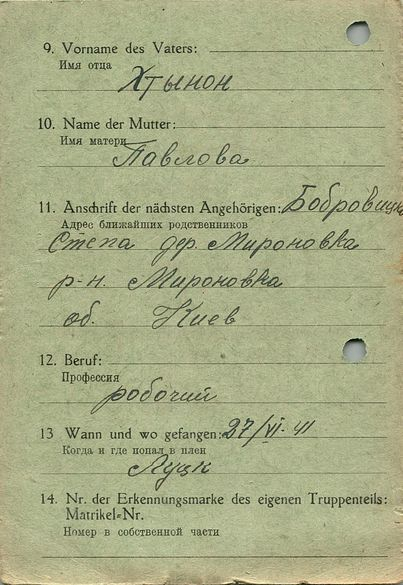 9. Vorname des Vaters:
Имя отца
Хтынон
10. Name der Mutter:
Имя матери
Павлова
11. Anschrift der nächsten Angehörigen: Бобровицка
Адрес ближайших родственников
Степа дер. Мироновка
р-н. Мироновка
об. Киев
12. Beruf:
Профессия
робочий
13 Wann und wo gefangen: 27/VI-41
Когда и где попал в плен
Луцк
14. Nr. der Erkennungsmarke des eigenen Truppenteils:
Matrikel-Nr.
Номер в собственной части